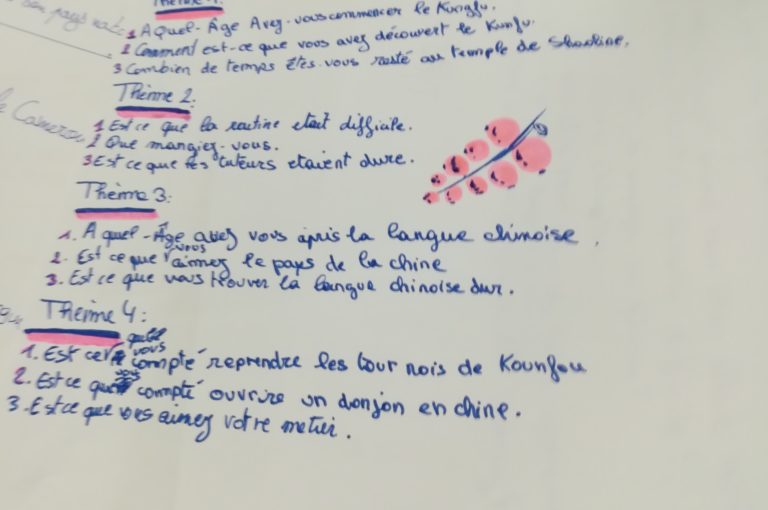 Thème 1:
1 A quel-Âge Avez-vous commencer le Kungfu.
2 Comment est-ce que vous avez découvert le Kunfu.
3 Combien de temps êtes-vous resté au temple de
Thème 2:
1 Est ce que la routine etait difficile.
2 Que mangiez-vous.
3 Est ce que les tuteurs etaient dure.
Thème 3:
1. A quel-Âge avez vous apris la langue chinoise.
2. Est ce que vous aimez le pays de la chine
3. Est ce que vous trouver la langue chinoise dur.
Thème 4:
1. Est ce que vous compté reprendre les tour nois de Kounfou
2. Est ce que vous compté ouvrire un donjon en chine.
3. Est ce que vous aimez votre metier.